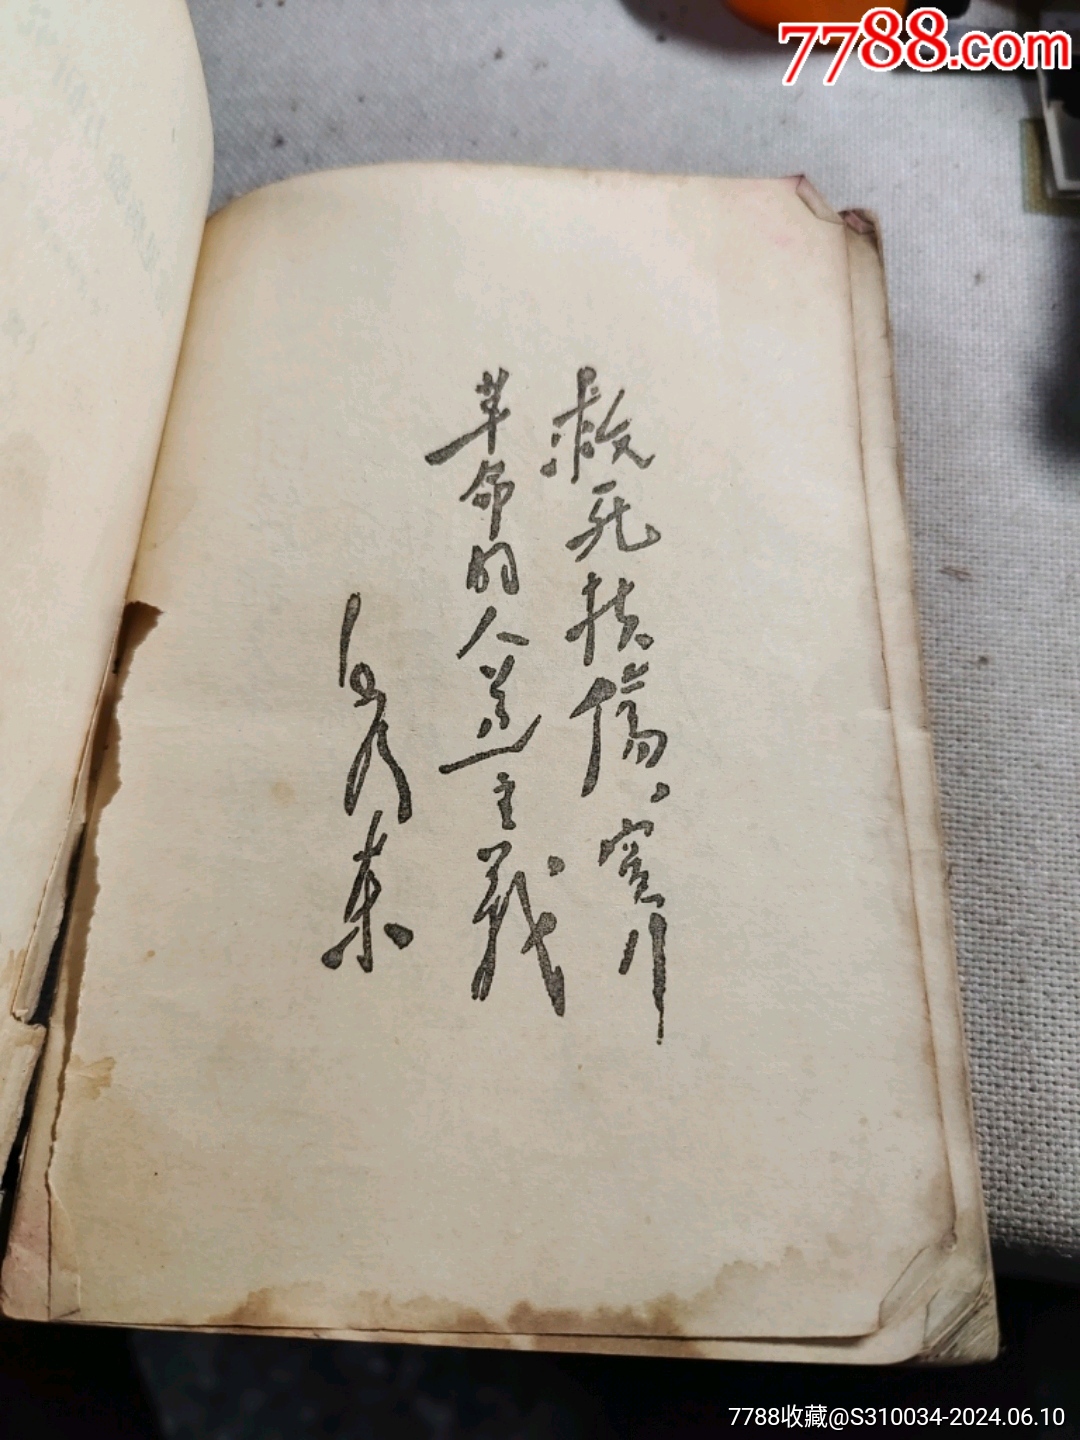 7788.com
救死扶傷、實行
革命的人道主義
毛澤東
7788收藏@S310034-2024.06.10